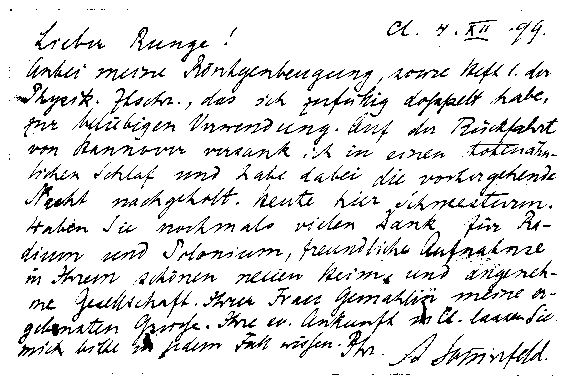 Cl. 4. XII. 99.
Lieber Runge!
Anbei meine Röntgenbeugung, sowie Heft 1. der
Physik. Ztschr., das ich zufällig doppelt habe,
zur beliebigen Verwendung. Auf der Rückfahrt
von Hannover versank ich in einen totenähn-
lichen Schlaf und habe dabei die vorhergehende
Nacht nachgeholt. Heute hier Schneesturm.
Haben Sie nochmals vielen Dank für Ra-
dium und Polonium, freundliche Aufnahme
in Ihrem schönen neuen Heim, und angeneh-
me Gesellschaft. Ihrer Frau Gemahlin meine er-
gebensten Grüsse. Ihre ev. Ankunft in Cl. lassen Sie
mich bitte in jedem Fall wissen. Ihr A Sommerfeld.